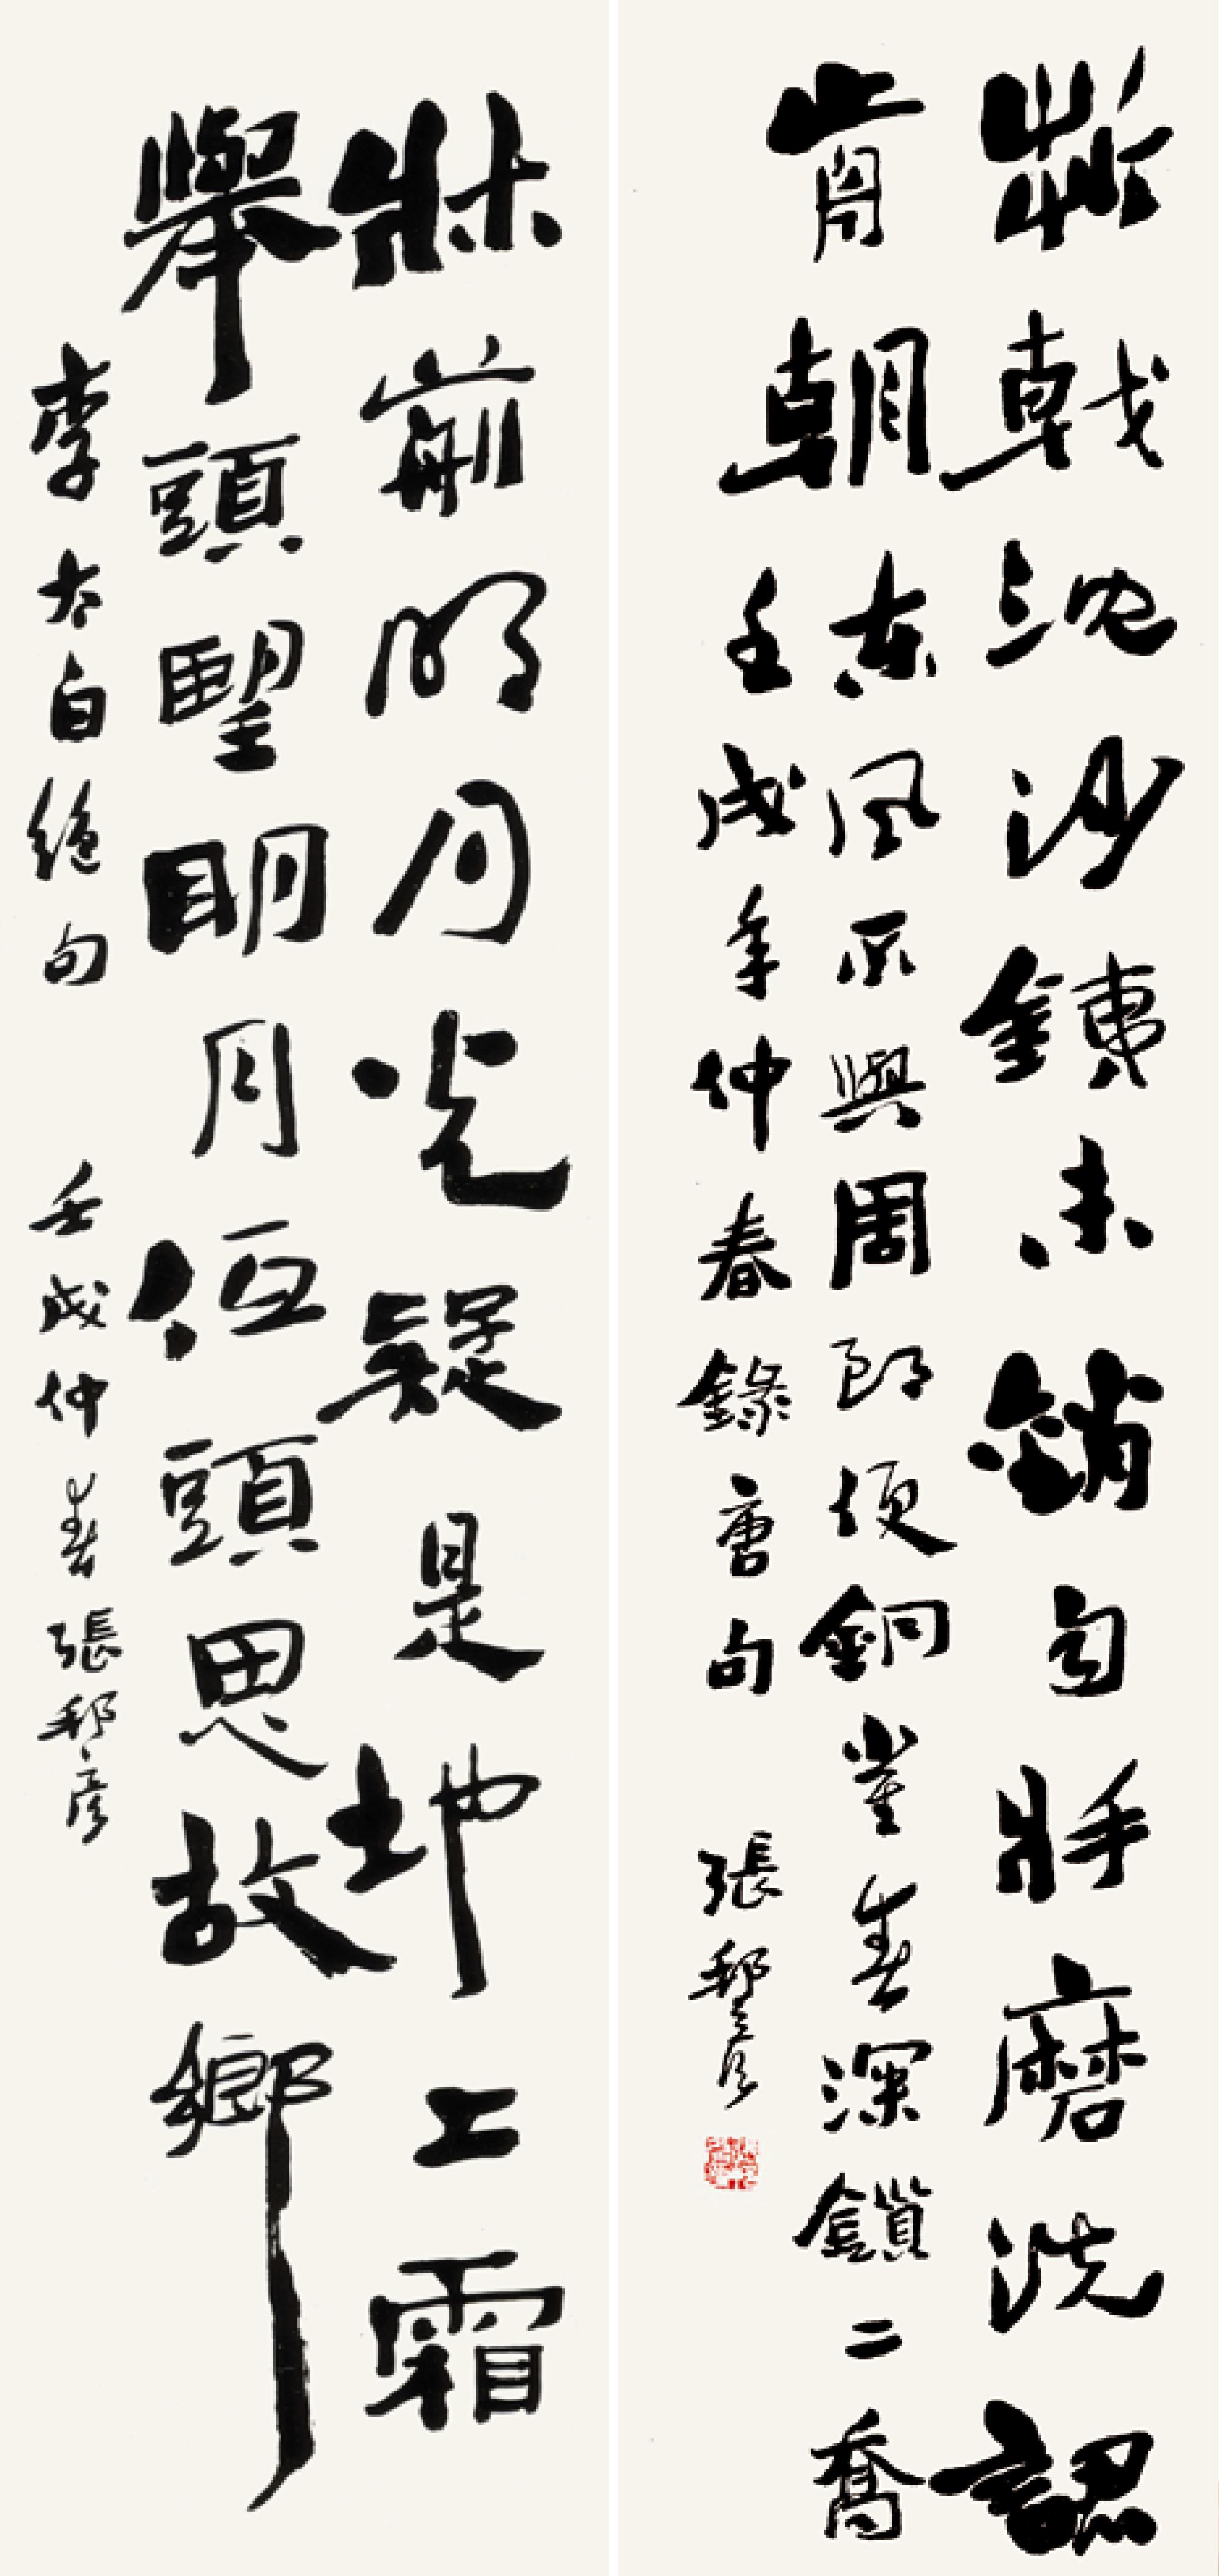 折戟沈沙銕未銷自將磨洗認
前朝東風不與周郎便銅雀春深鎖二喬
壬戌年仲春錄唐句 張邦彥
牀前明月光疑是地上霜
舉頭望眀月低頭思故鄉
李太白絕句 壬戌仲春張邦彥